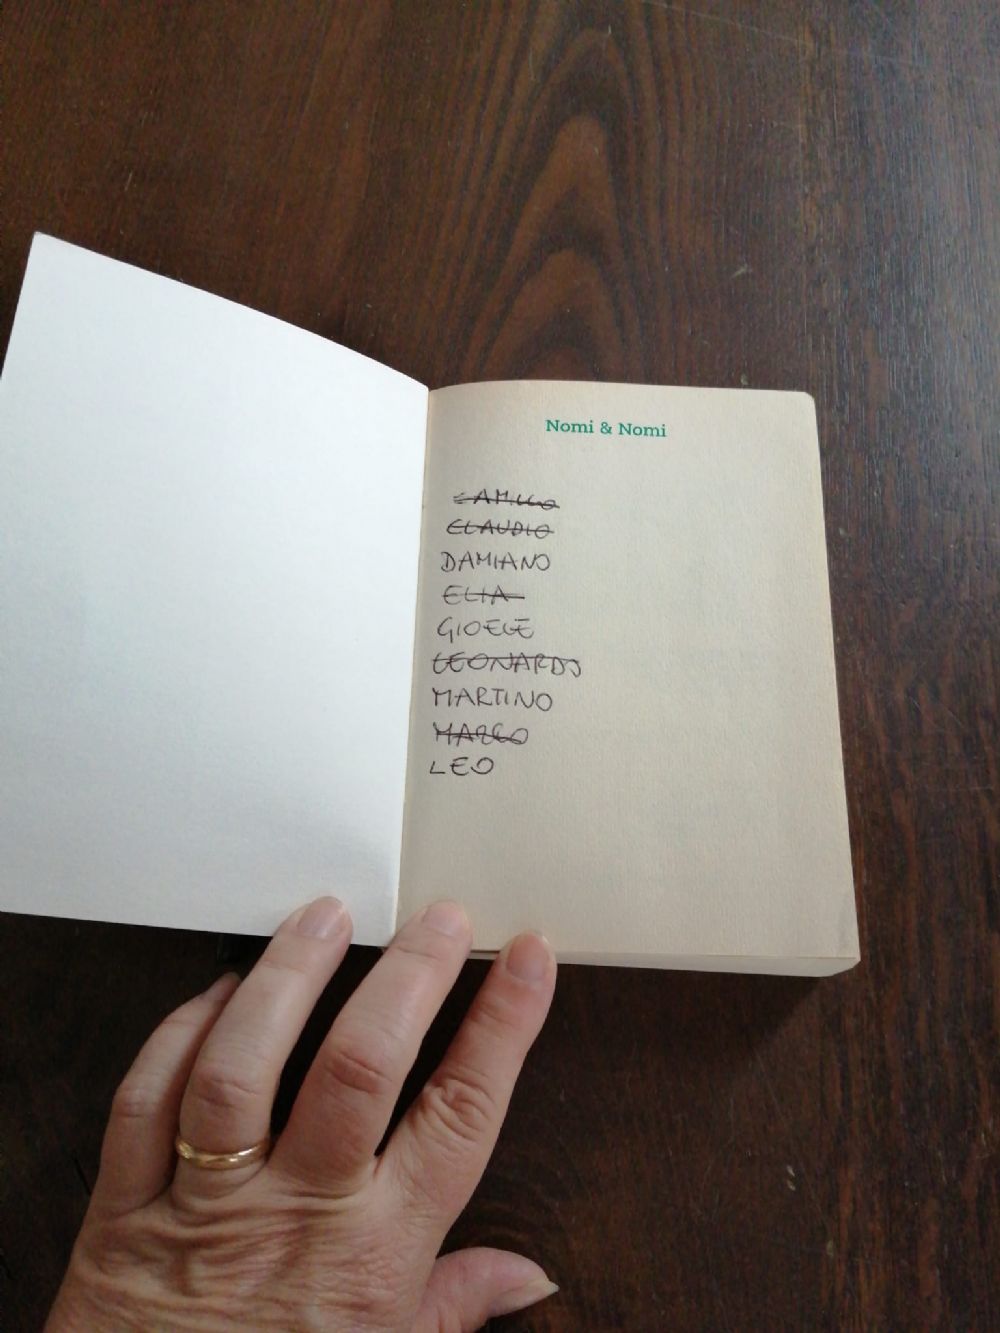 Nomi & Nomi
CAMILLO
CLAUDIO
DAMIANO
ELIA
GIOELE
LEONARDO
MARTINO
MARCO
LEO